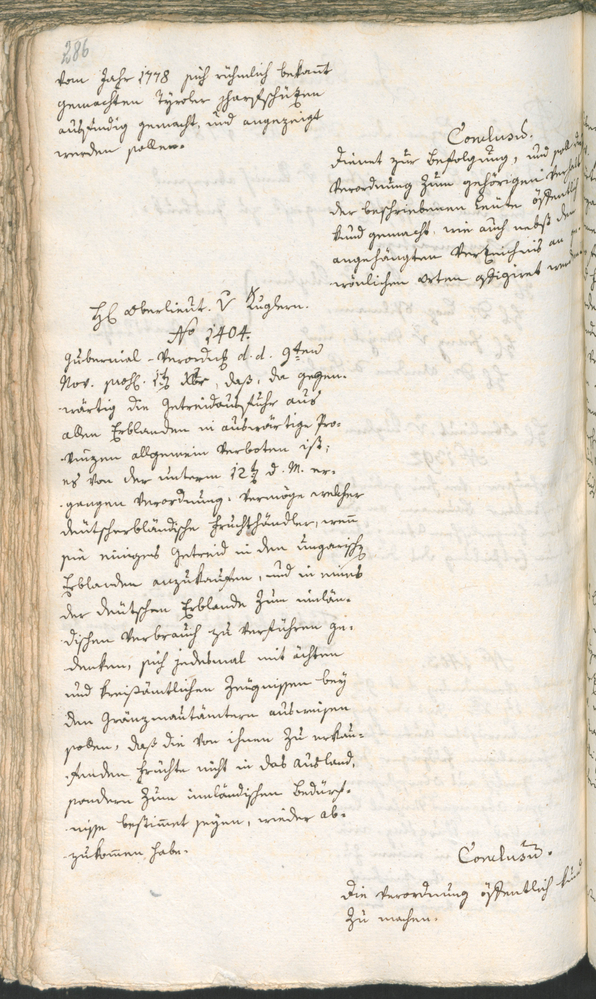 286
vom Jahr 1778 sich rühmlich bekant
gemachten Tyroler Scharfschützen
ausfindig gemacht, und angezeigt
werden sollen.
Conclusũ.
Dienet zur Befolgung, und soll die
Verordnung zum gehörigen Verhalt
der beschriebenen Leute öffentlich
kund gemacht, wie auch nebst dem
angehängten Verzeichnis an ge-
wönlichen Orten affigiret werden
H. Oberlieut. v. Kuglern.
No 1404.
Gubernial-Verordng d. d. 9ten
Nov. daß, da gegen-
wärtig die Getreidausfuhr aus
allen Erblanden in auswärtige Pro-
vinzen allgemein verboten ist;
es von der unterm 12t d. M. er-
gangen Verordnung, vermöge welcher
deutscherbländische Fruchthändler, wenn
sie einiges Getreid in den ungarisch
Erblanden anzukaufen, und in eines
der deutschen Erblande zum inlän-
dischen Verbrauch zu verführen ge-
denken, sich jedesmal mit ächten
und kreisämtlichen Zeugnissen bey
den Gränzmautämtern ausweisen
sollen, daß die von ihnen zu erkau-
fenden Früchte nicht in das Ausland,
sondern zum inländischen Bedürf-
nisse bestimmet seyen, wieder ab-
zukommen habe.
Conclusũ.
Die Verordnung öffentlich kund
zu machen.